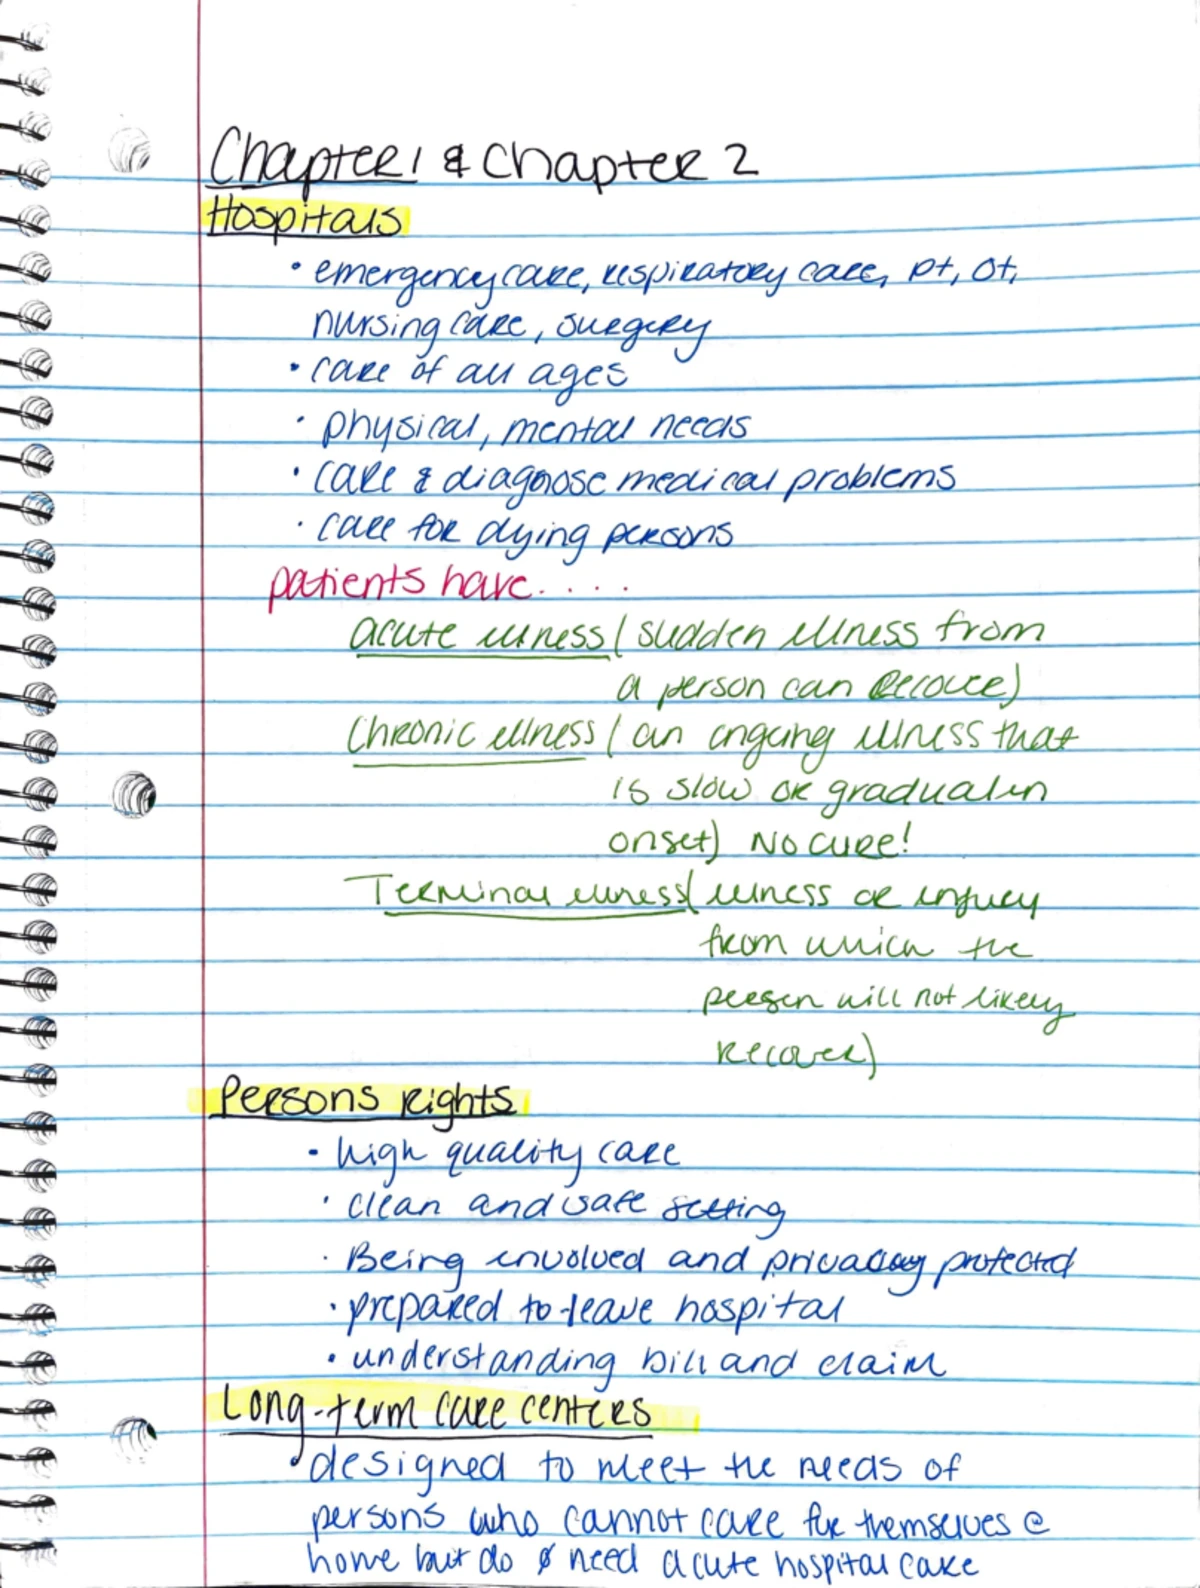 Chapter 1 & Chapter 2
Hospitals
• emergency care, respiratory care, pt, ot,
nursing care, surgery
• care of all ages
• physical, mental needs
• care & diagnose medical problems
• care for dying persons
patients have.....
acute illness (sudden illness from
a person can recover)
Chronic illness (an ongoing illness that
is slow or gradual in
onset) No cure!
Terminal illness (illness or injury
from which the
person will not likely
recover)
Persons rights
• high quality care
• clean and safe setting
• Being involved and privacy protected
• prepared to leave hospital
• understanding bill and claim
Long-term care centers
• designed to meet the needs of
persons who cannot care for themselves @
home but do ∅ need acute hospital care